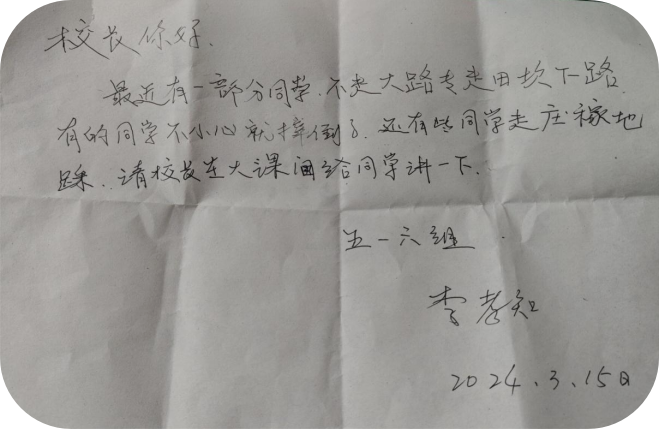 校长你好.
最近有一部分同学.不走大路专走田坎下路.
有的同学不小心就摔倒了.还有些同学走庄稼地
踩..请校长在大课间给同学讲一下.
五一六组
李孝知
2024.3.15日